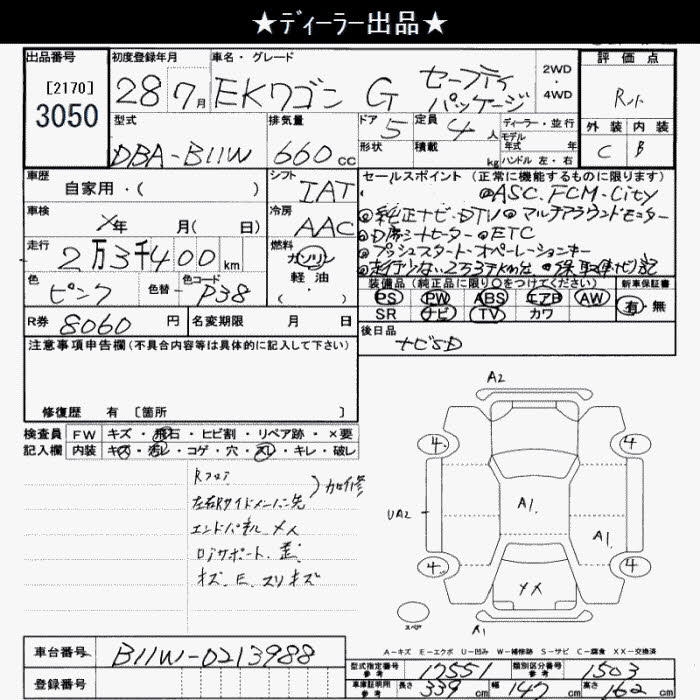 ★ディーラー出品★
出品番号
[2170]
3050
初度登録年月
28 7月
車名・グレード
EKワゴン G セーフティ パッケージ
2WD
4WD
評価点
R
外装 内装
C B
型式
DBA-B11W
排気量
660cc
ドア 5
形状
定員 4人
積載 kg
ディーラー・並行
モデル
年式 年
ハンドル 左・右
車歴
自家用・( )
シフト
IAT
セールスポイント (正常に機能するものに限ります)
◎ASC.FCM-City
◎純正ナビ・DTV ◎マルチアラウンドモニター
◎D席シートヒーター ◎ETC
◎プッシュスタート・オペレーションキー
◎走行少ない
車検
X年 月( 日)
冷房
AAC
走行
2万3千400km
燃料
ガソリン
軽油
・( )
色
ピンク
色替
色コード
P38
装備品 (純正品に限り○をつけてください)
PS PW ABS エアB AW
SR ナビ TV カワ
新車保証書
有・無
R券 8060円
名変期限 月 日
後日品
ナビSD
注意事項申告欄(不具合内容等は具体的に記入して下さい)
修復歴 有 〔箇所 〕
検査員
記入欄
FW キズ・飛石・ヒビ割・リペア跡・×要
内装 キズ・汚レ・コゲ・穴・スレ・キレ・破レ
Rフロア
左右Rサイドメンバー先
加修
エンドパネル メX
キズ、E、スリキズ
A2
4 4
UA2
A1
A1
4 4
XX
スペア
A1
A-キズ E-エクボ U-凹み W-補修跡 S-サビ C-腐食 XX-交換済
車台番号 B11W-0213988
登録番号
型式指定番号
参考
17551
類別区分番号
参考
1503
車庫証明用
参考
長さ 339cm 幅 147cm 高さ 162cm